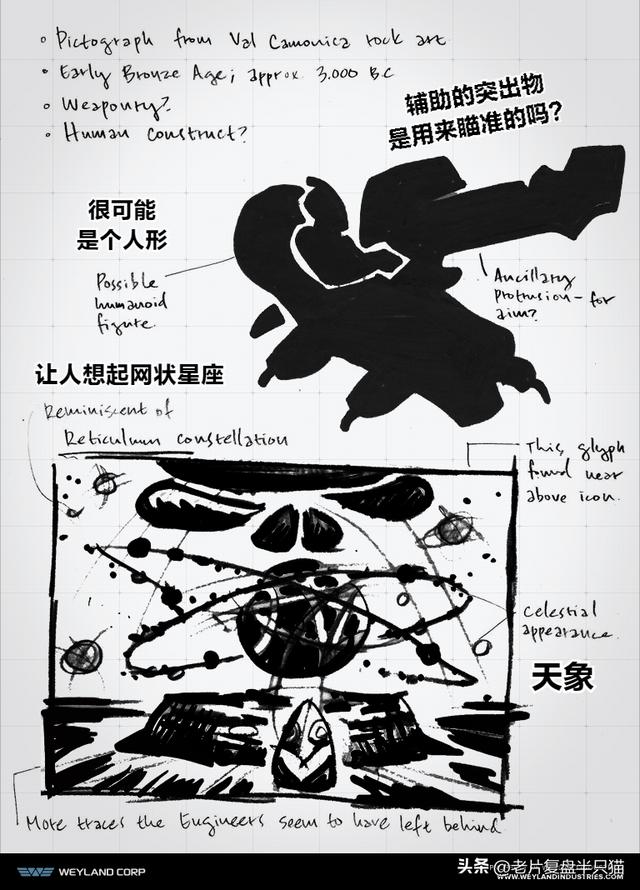 Pictograph from Val Camonica rock art
Early Bronze Age; approx. 3,000 BC
Weapoury?
Human construct?
辅助的突出物
是用来瞄准的吗?
很可能
是个人形
Possible
humanoid
figure.
Ancillary
protrusion - for
aim?
让人想起网状星座
Reminiscent of
Reticulum constellation
This glyph
found near
above icon.
Celestial
appearance.
天象
More traces the Engineers seem to have left behind.
WEYLAND CORP
头条@老片复盘半只猫
WWW.WEYLANDINDUSTRIES.COM